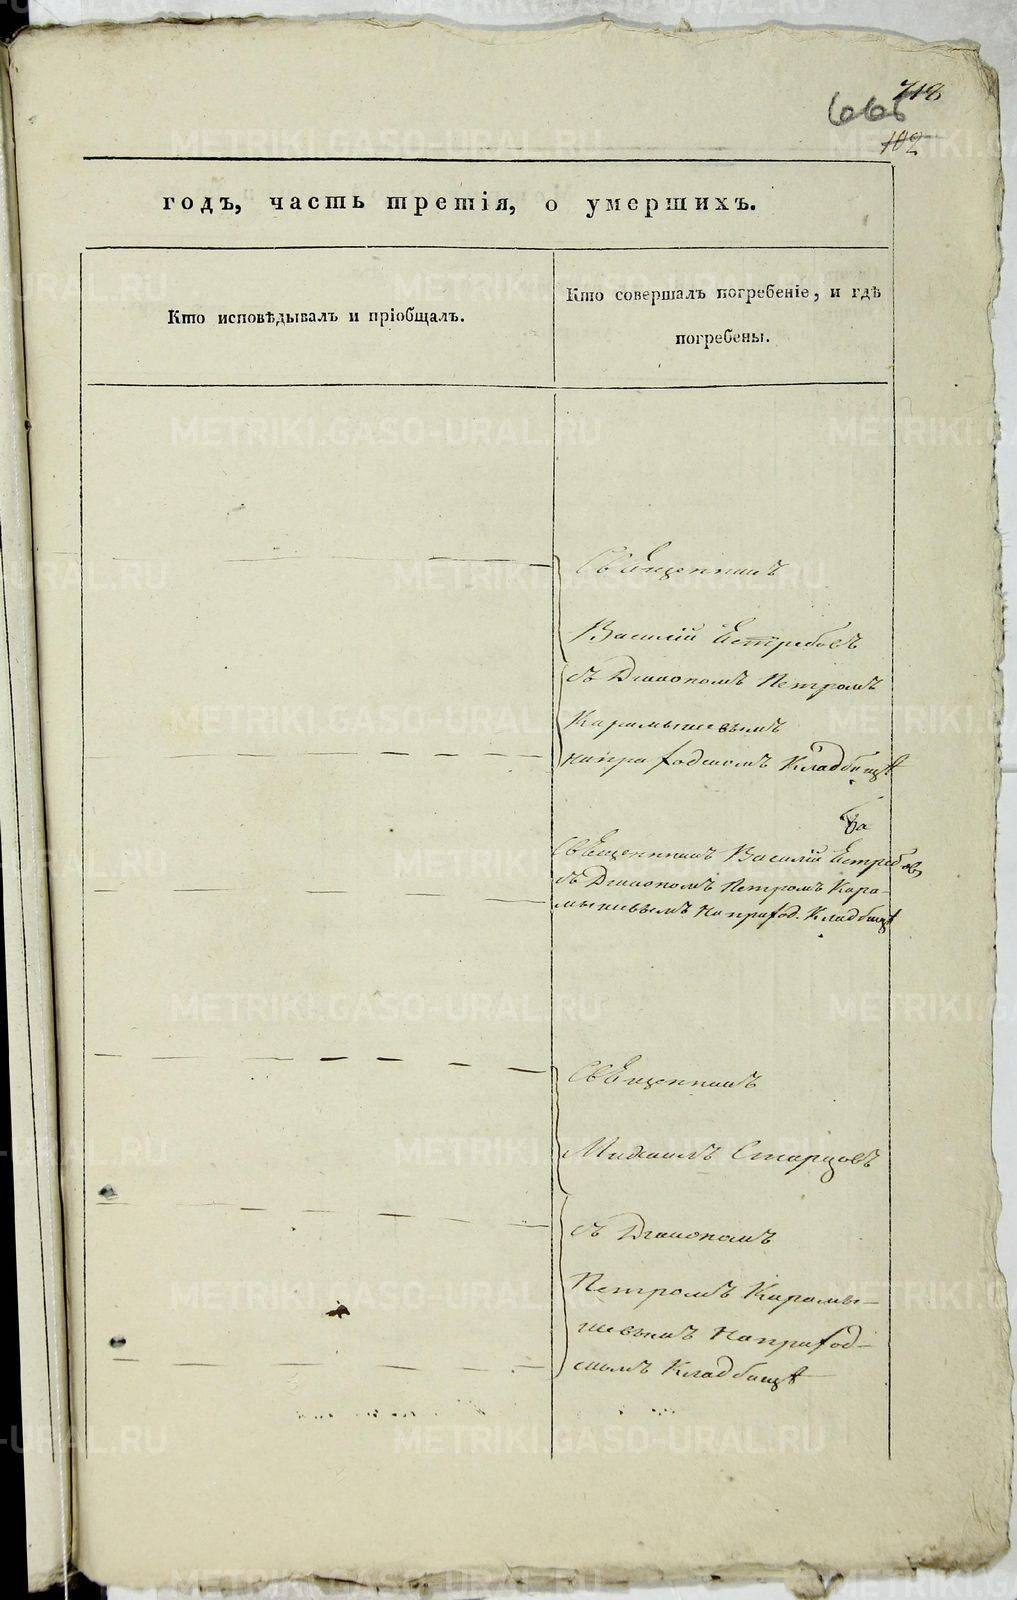 718
666
102
годъ, часть третія, о умершихъ.
Кто исповѣдывалъ и пріобщалъ.
Кто совершалъ погребеніе, и гдѣ
погребены.
Священникъ
Василій Ястребовъ
съ Діакономъ Петромъ
Карамышевымъ
на приходскомъ Кладбищѣ
Священникъ Василій Ястребовъ
съ Діакономъ Петромъ Кара-
мышевымъ на приход. Кладбищѣ
Священникъ
Михаилъ Старцовъ
съ Діакономъ
Петромъ Карамы-
шевымъ на приход-
скомъ Кладбищѣ
METRIKI.GASO-URAL.RU